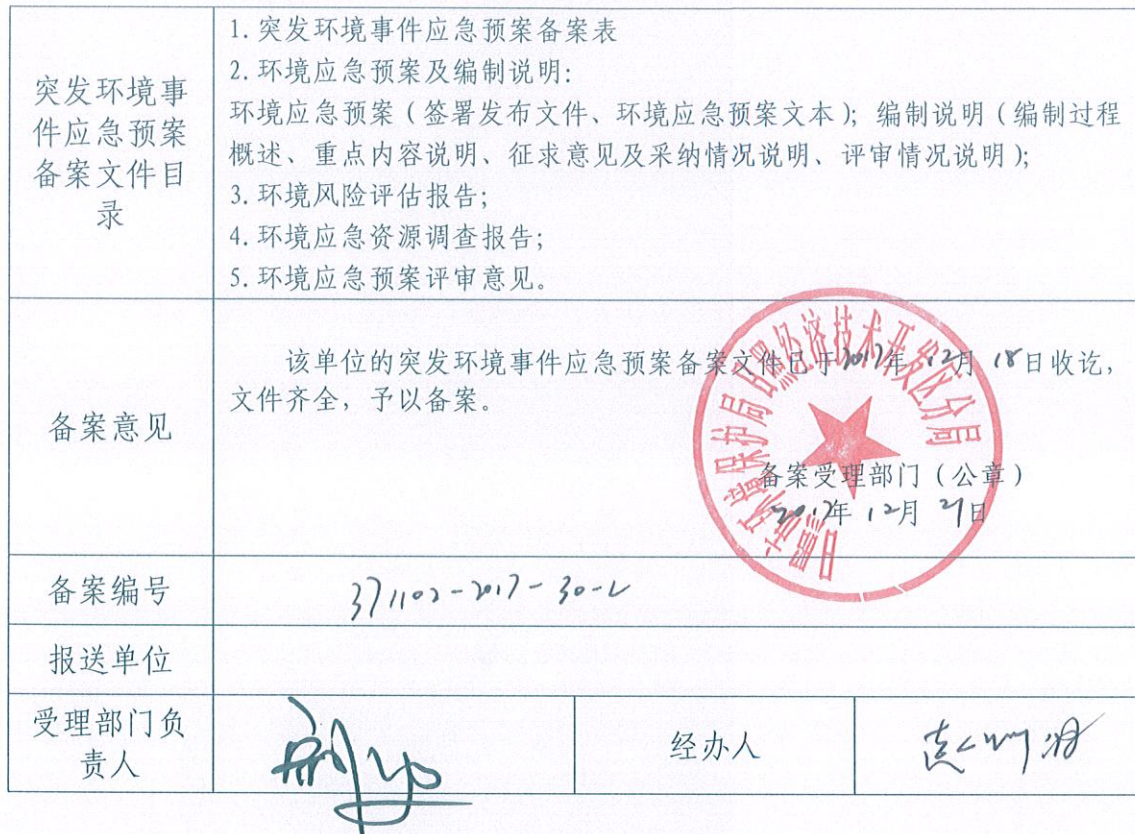 突发环境事
件应急预案
备案文件目
录
1. 突发环境事件应急预案备案表
2. 环境应急预案及编制说明：
环境应急预案（签署发布文件、环境应急预案文本）；编制说明（编制过程
概述、重点内容说明、征求意见及采纳情况说明、评审情况说明）；
3. 环境风险评估报告；
4. 环境应急资源调查报告；
5. 环境应急预案评审意见。
备案意见
该单位的突发环境事件应急预案备案文件已于2017年 12月 18日收讫，
文件齐全，予以备案。
日照市环境保护局日照经济技术开发区分局
备案受理部门（公章）
2017年 12月 21日
备案编号
371102-2017-30-L
报送单位
受理部门负
责人
经办人